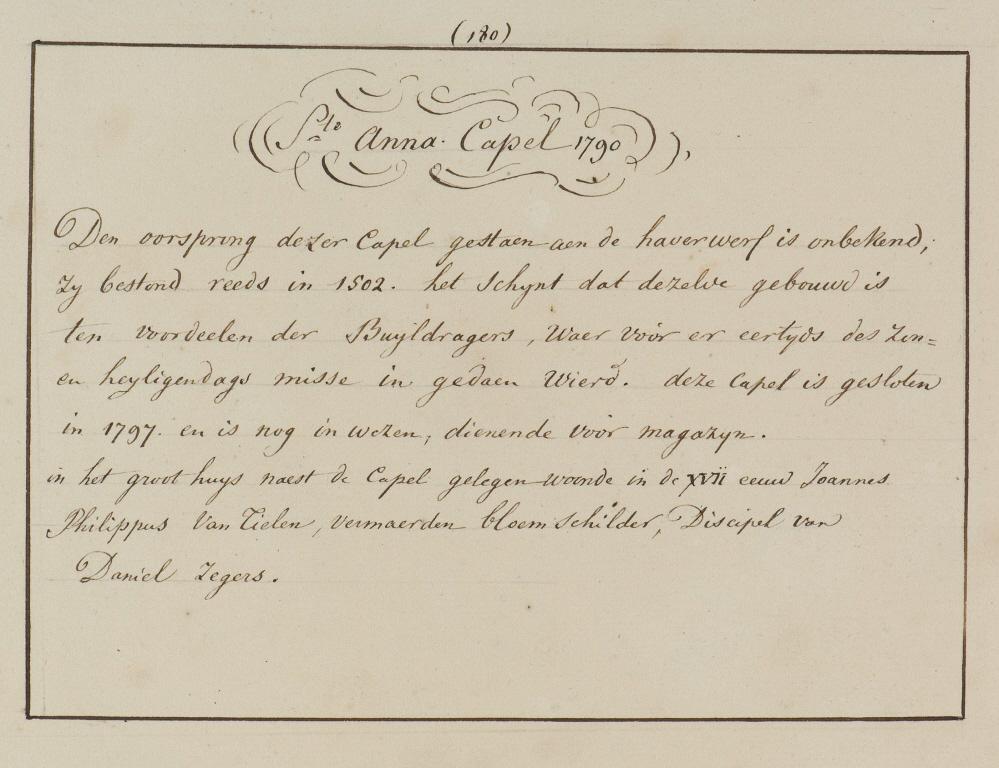 (180)
Ste Anna Capel 1790
Den oorspring dezer Capel gestaen aen de haverwerf is onbekend,
zy bestond reeds in 1502. het schynt dat dezelve gebouwd is
ten voordeelen der Buyldragers, waer voor er eertyds des zon=
en heyligendags misse in gedaen wierd. deze Capel is gesloten
in 1797. en is nog in wezen, dienende voor magazyn.
in het groot huys naest de Capel gelegen woonde in de XVII eeuw Joannes
Philippus Van Tielen, vermaerden bloemschilder, Discipel van
Daniel Zegers.